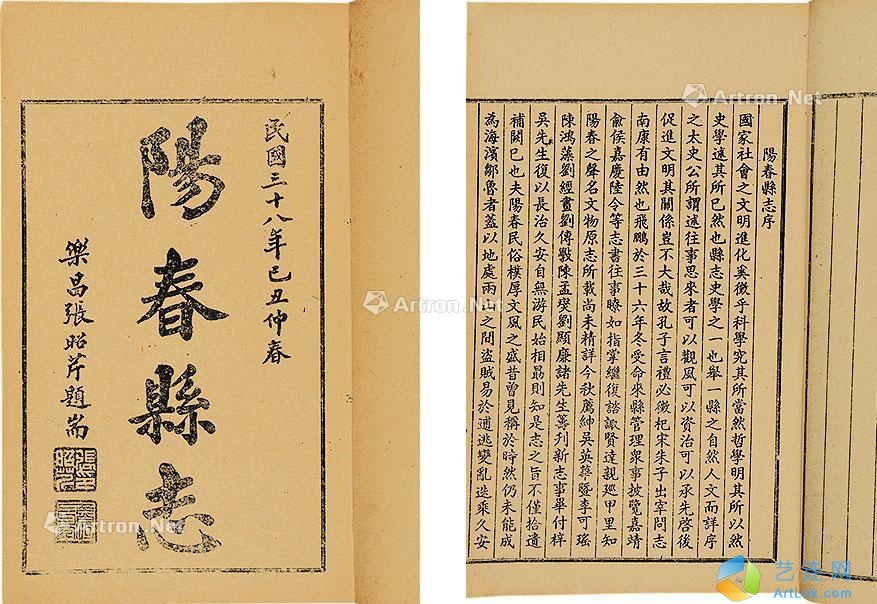 民國三十八年己丑仲春
陽春縣志
樂昌張昭芹題耑
陽春縣志序
國家社會之文明進化奚徵乎科學究其所當然哲學明其所以然
史學述其所已然也縣志史學之一也舉一縣之自然人文而詳序
之太史公所謂述往事思來者可以觀風可以資治可以承先啓後
促進文明其關係豈不大哉故孔子言禮必徵杞宋朱子出宰問志
南康有由然也飛鵬於三十六年冬受命來縣管理衆事披覽嘉靖
俞侯嘉慶陸令等志書往事瞭如指掌繼復諮諏賢達親廵甲里知
陽春之聲名文物原志所載尚未精詳今秋薦紳吳英華暨李可瑤
陳鴻藻劉經畫劉傳斅陳孟燮劉顯廉諸先生籌刋新志事畢付梓
吳先生復以長治久安自無游民始相勗則知是志之旨不僅拾遺
補闕已也夫陽春民俗樸厚文風之盛昔曾見稱於時然仍未能成
為海濱鄒魯者蓋以地處兩山之間盜賊易於逋逃變亂迭乘久安
Artron.Net
Artron.Net
Artron.Net
Artron.Net
艺连网
ArtLek.com